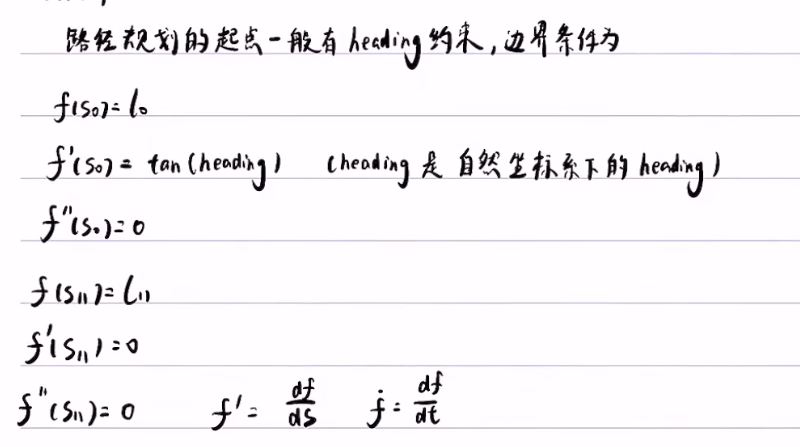 路径规划的起点一般有 heading 约束,边界条件为
f(s₀)=l₀
f'(s₀)= tan(heading) (heading 是 自然坐标系下的 heading)
f''(s₀)=0
f(s₁₁)=l₁₁
f'(s₁₁)=0
f''(s₁₁)=0 f'= df/ds ḟ= df/dt